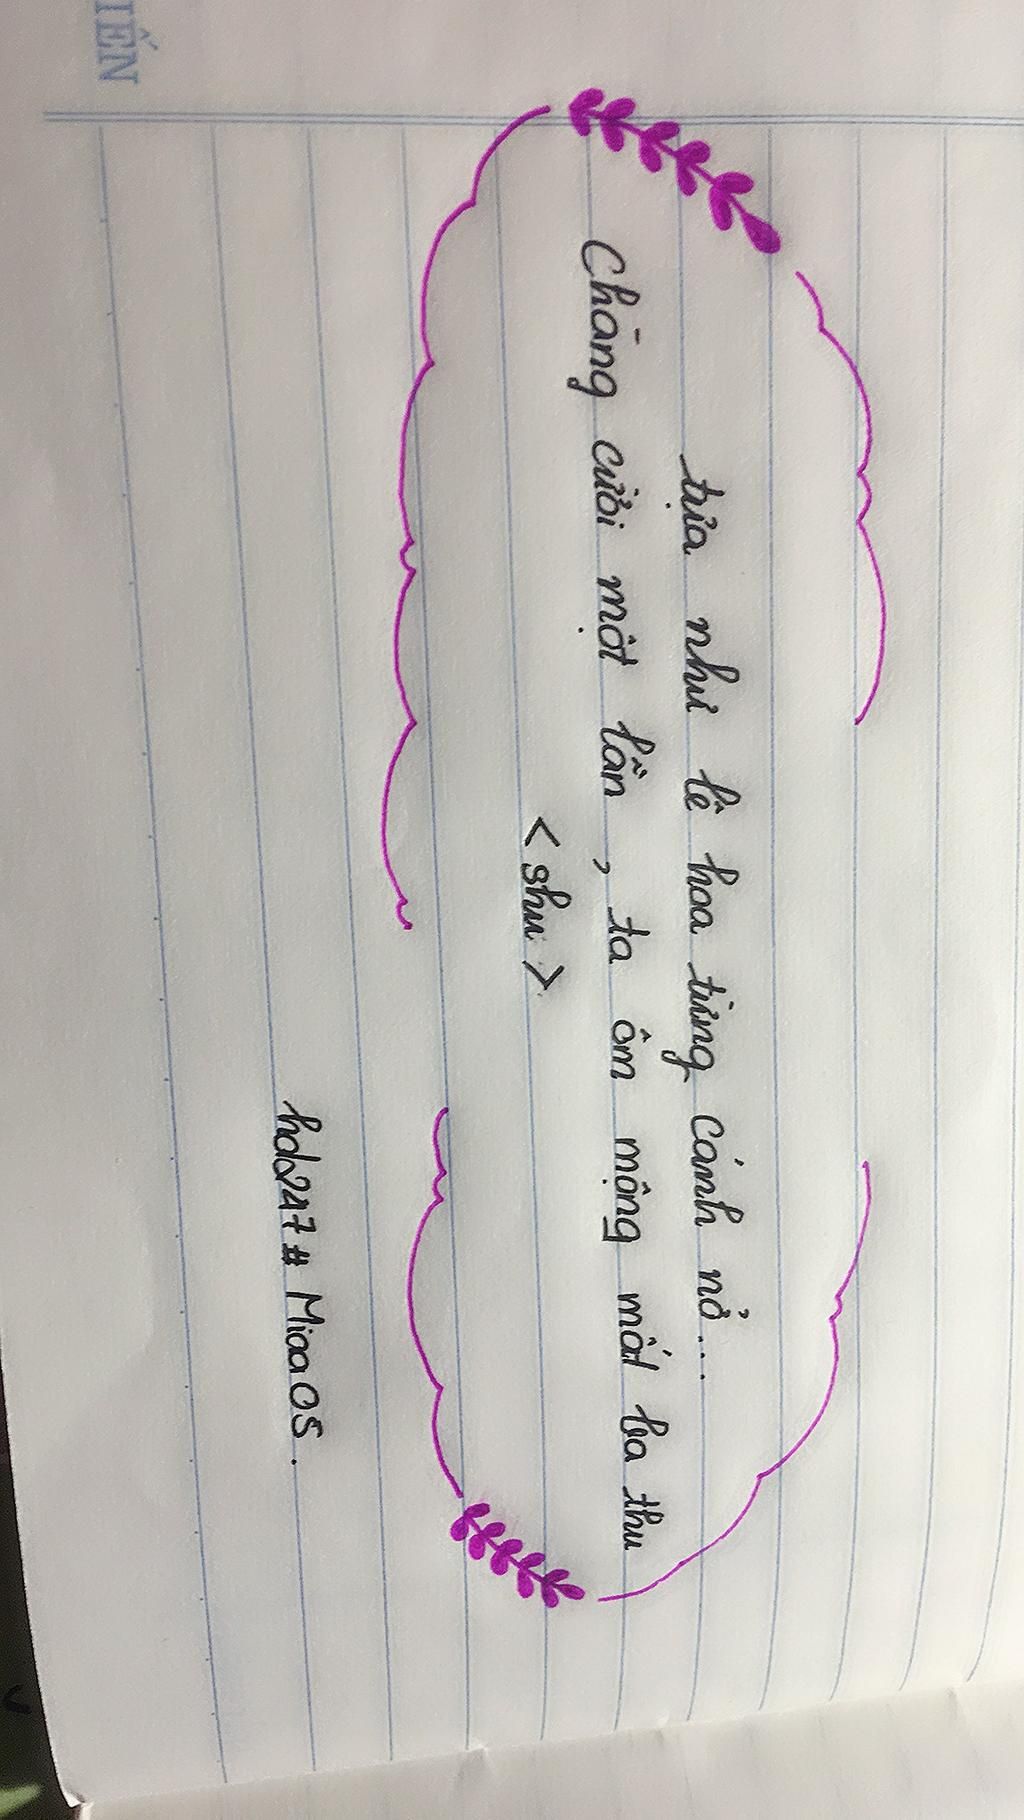 IẾN
tựa như lê hoa từng cánh nở...
Chàng cười một lần, ta ôm mộng mất ba thu
<shu>
hd247# Miaa05.